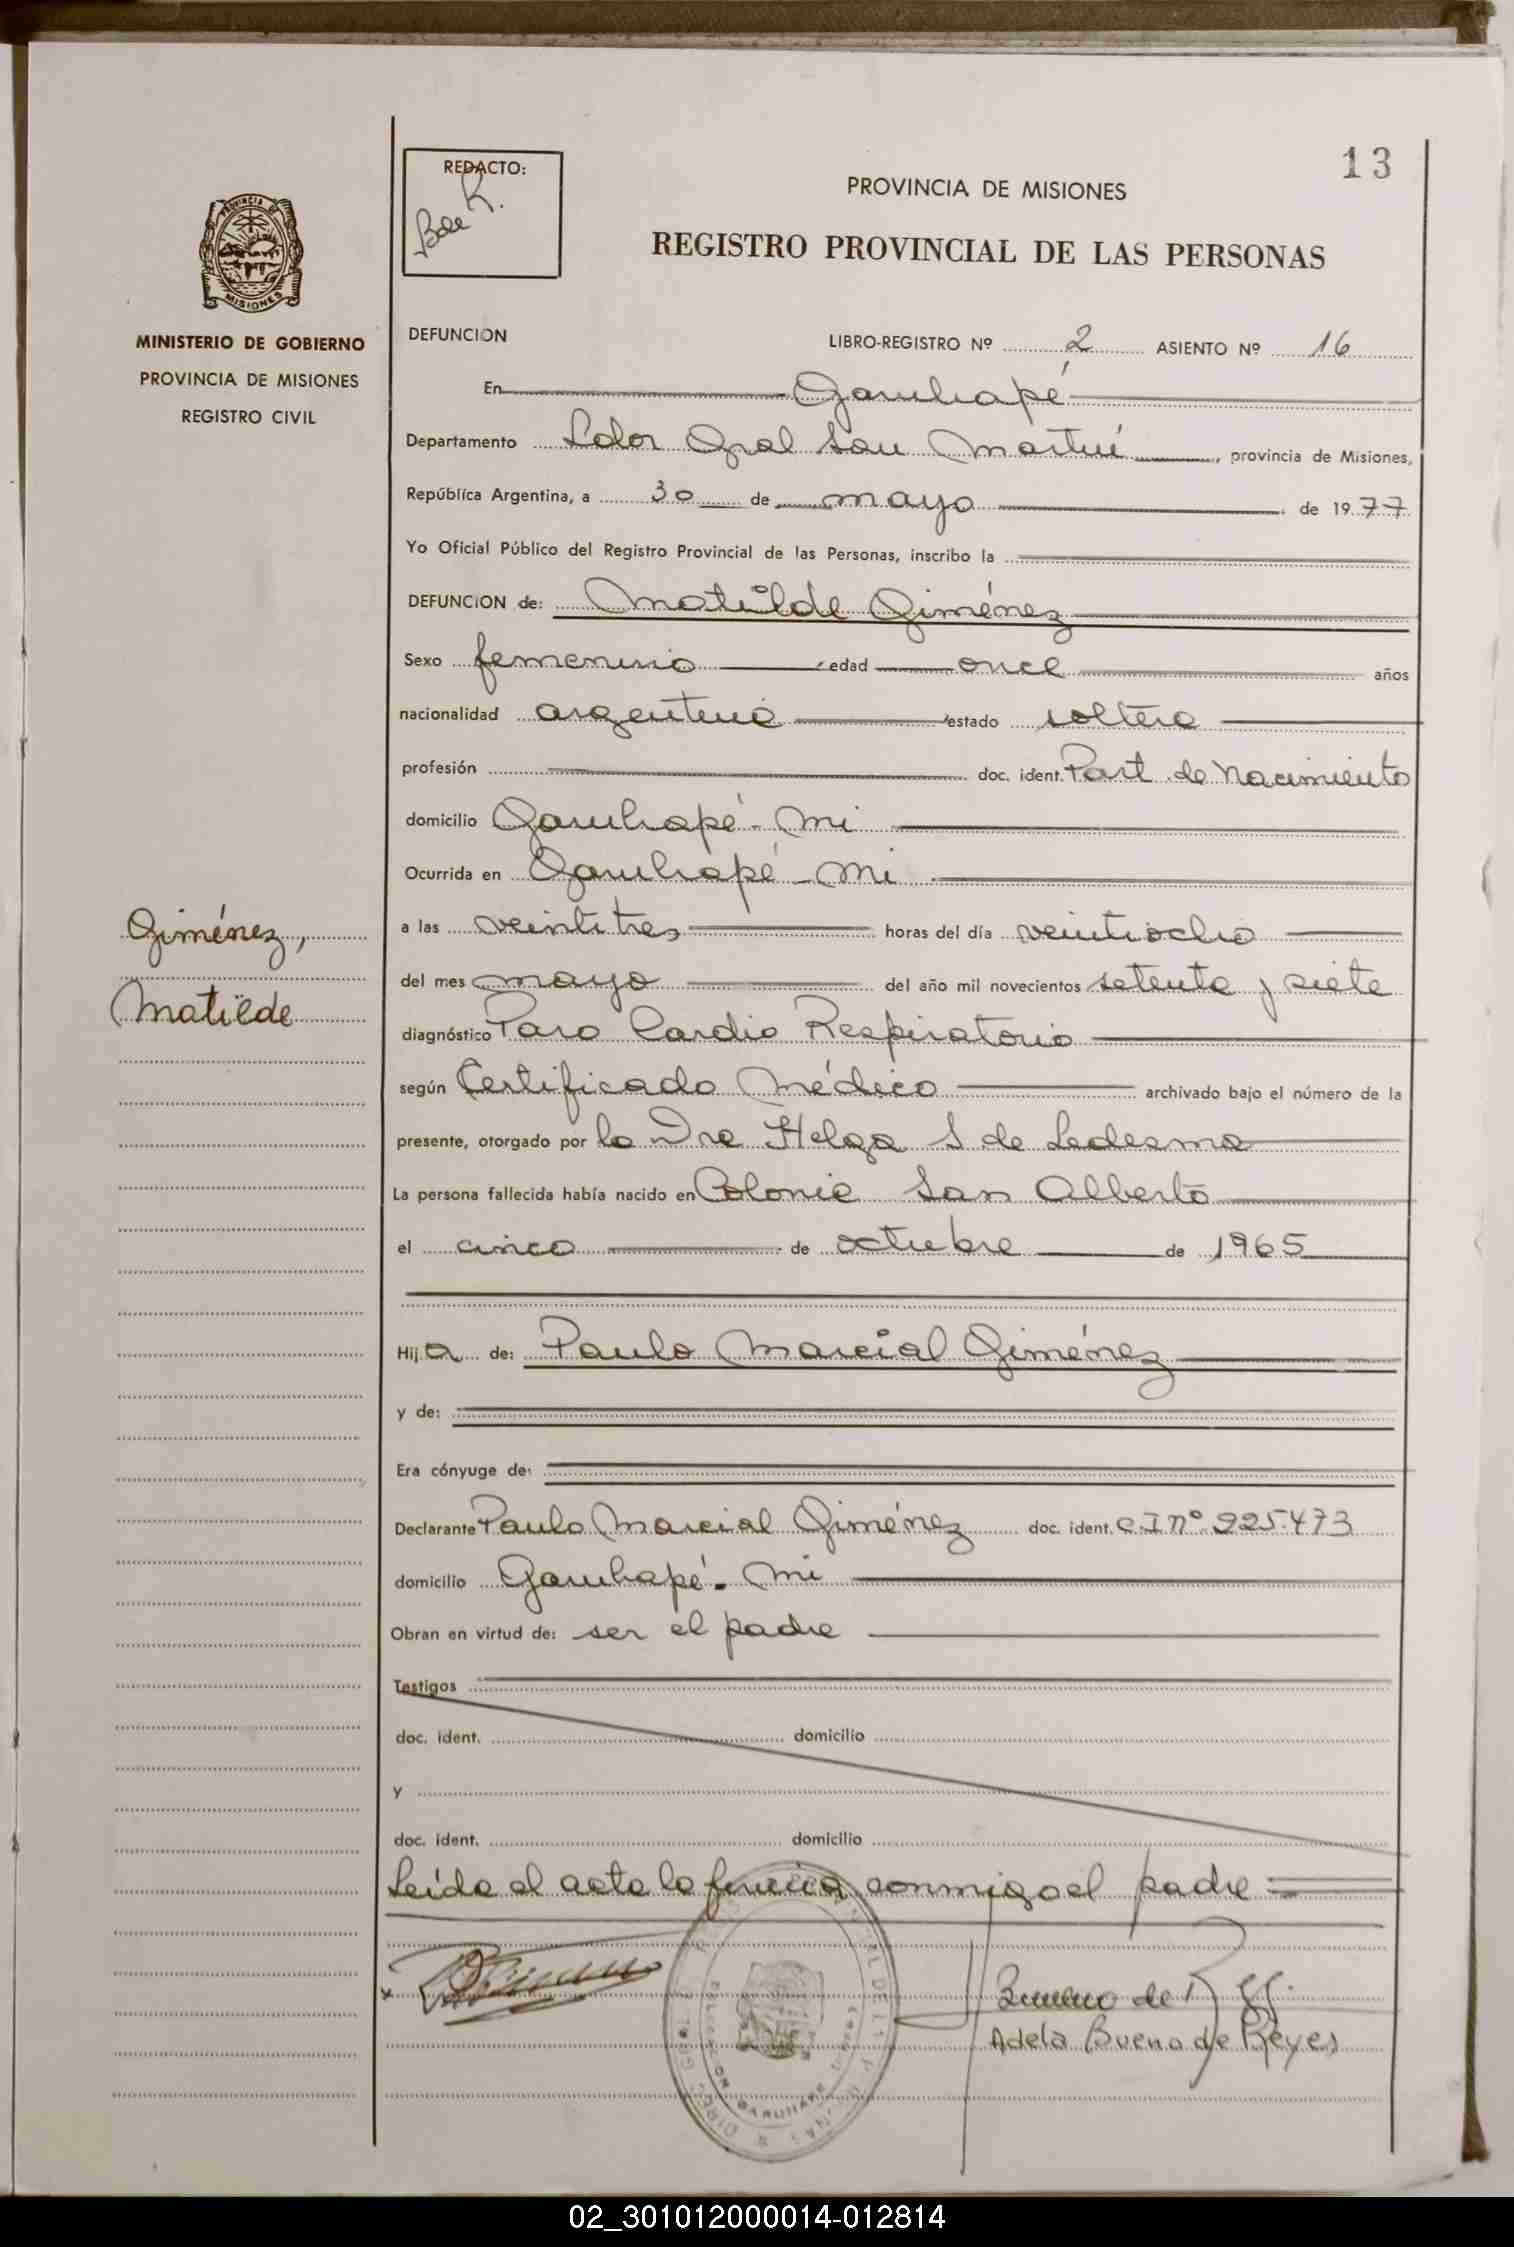 13
REDACTO:
B de R.
PROVINCIA DE MISIONES
REGISTRO PROVINCIAL DE LAS PERSONAS
PROVINCIA DE
MISIONES
MINISTERIO DE GOBIERNO
PROVINCIA DE MISIONES
REGISTRO CIVIL
DEFUNCION LIBRO-REGISTRO Nº 2 ASIENTO Nº 16
En Garuhapé
Departamento Ldor Gral San Martín, provincia de Misiones,
República Argentina, a 30 de mayo de 1977
Yo Oficial Público del Registro Provincial de las Personas, inscribo la
DEFUNCION de: Matilde Giménez
Sexo femenino edad once años
nacionalidad argentina estado soltera
profesión doc. ident. Part de Nacimiento
domicilio Garuhapé - Mi
Ocurrida en Garuhapé - Mi
Giménez,
Matilde
a las veintitres horas del día veintiocho
del mes mayo del año mil novecientos setenta y siete
diagnóstico Paro Cardio Respiratorio
según Certificado Médico archivado bajo el número de la
presente, otorgado por la Dra Helga S de Ledesma
La persona fallecida había nacido en Colonia San Alberto
el cinco de octubre de 1965
Hija de: Paulo Marcial Giménez
y de:
Era cónyuge de:
Declarante Paulo Marcial Giménez doc. ident. C.I nº 225.473
domicilio Garuhapé - Mi
Obran en virtud de: ser el padre
Testigos
doc. ident. domicilio
y
doc. ident. domicilio
Leída el acta la firma conmigo el padre
Bueno de
Adela Bueno de Reyes
02_301012000014-012814